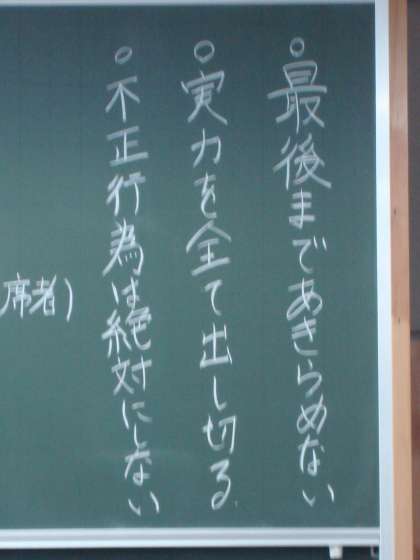 ○最後まであきらめない
○実力を全て出し切る
○不正行為は絶対にしない
席者)